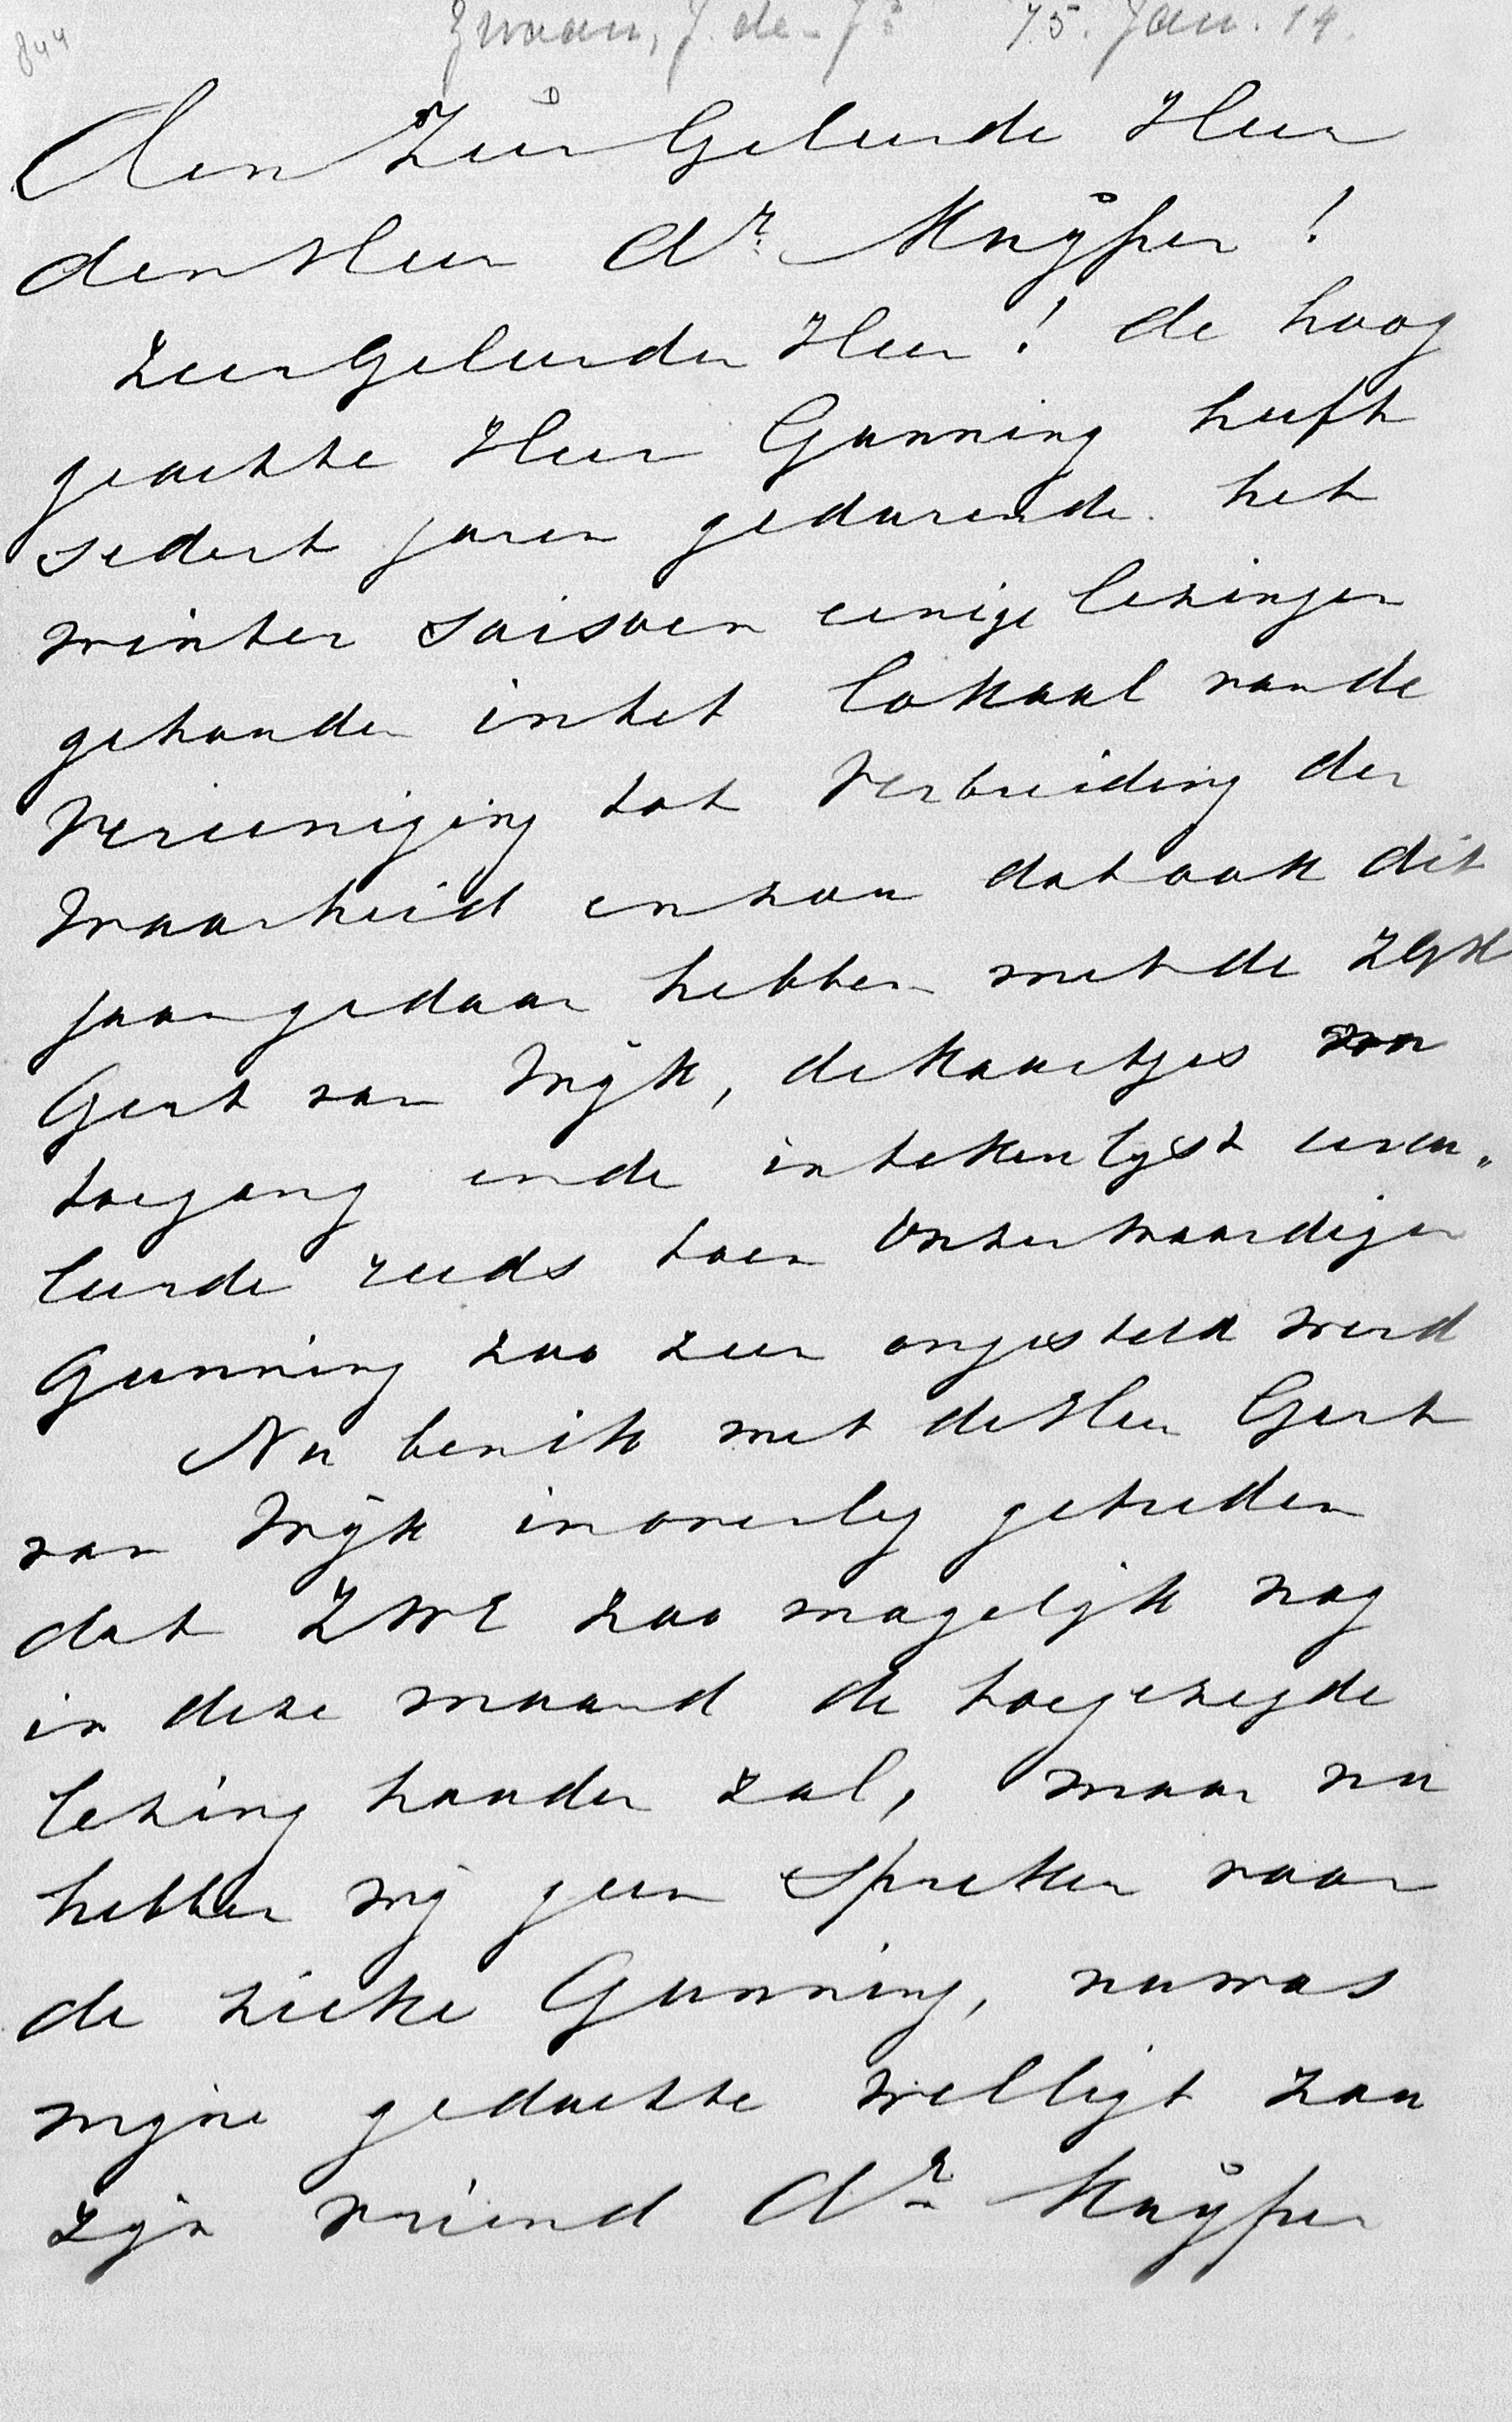 844
Zwaan, J. de - 75. Jan. 14.
Aen Zeer Geleerde Heer
den Heer Dr. Kuÿper !
Zeer Geleerden Heer ! de hoog
geachte Heer Gunning heeft
sedert jaren gedurende het
winter saisoen eenige lezingen
gehouden in het lokaal van de
Vereeniging tot Verbreiding der
Waarheid en zou dat ook dit
jaar gedaan hebben met de
Gert van Wÿk, de kaartjes
toegang en de intekenlyst circu„
leerde reeds toen Onze waardigen
Gunning zoo zeer ongesteld werd
Nu ben ik met de Heer Gert
van Wÿk in overleg getreden
dat ZWE zoo mogelijk nog
in deze maand de toegezegde
lezing houden zal, maar nu
hebben wij geen spreker voor
de zieke Gunning, nu was
mijne gedachte welligt zou
zijn vriend Dr. Kuÿper